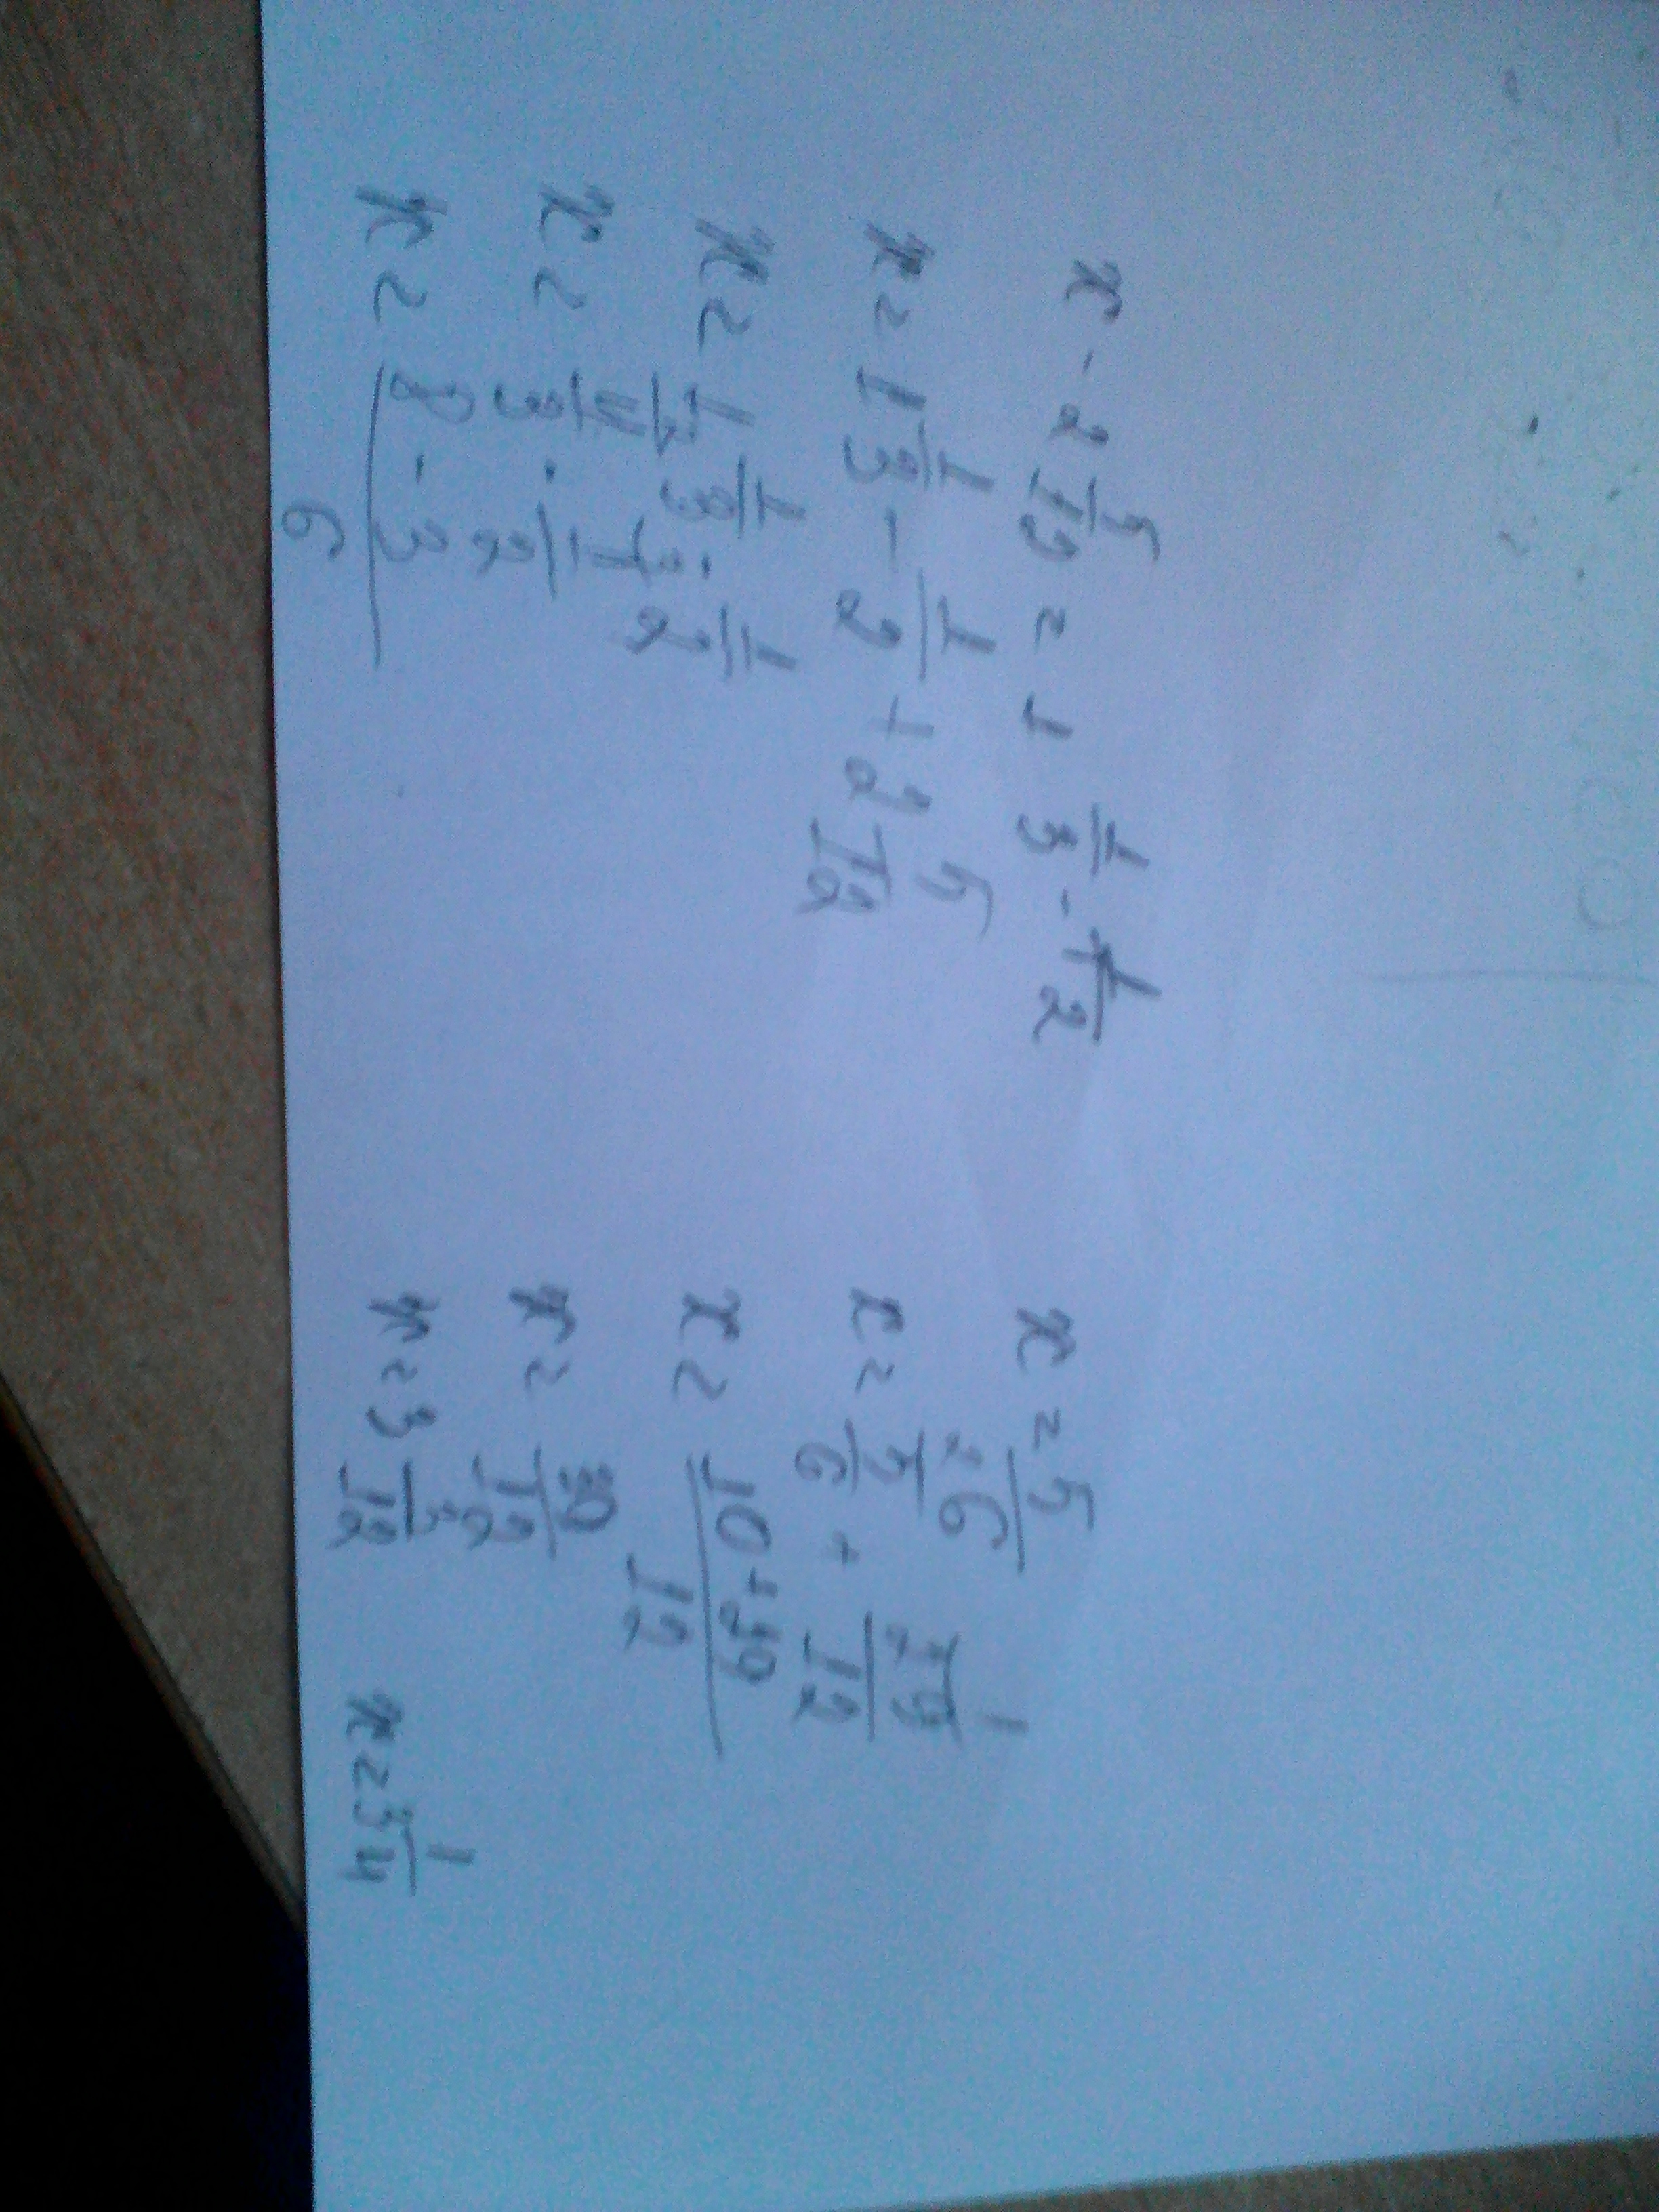 x - 2 5/12 = 1 1/3 - 1/2
x = 1 1/3 - 1/2 + 2 5/12
x = 1 1/3 - 1/2
x = 4/3 - 1/2
x = 8 - 3 / 6
x = 5/6
x = 5/6 + 29/12
x = 10 + 29 / 12
x = 39/12
x = 3 3/12 x = 3 1/4